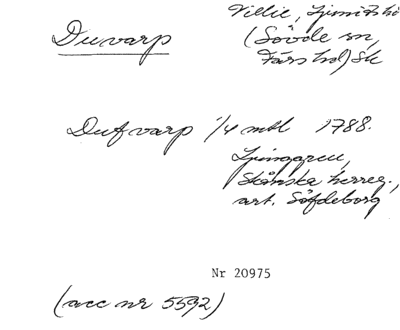 Villie, Ljunits hd
Duvarp (Sövde sn,
Färs hd) Sk
Dufvarp 1/4 mtl 1788.
Ljunggren,
Skånska herreg.,
art. Söfdeborg
Nr 20975
(acc nr 5592)